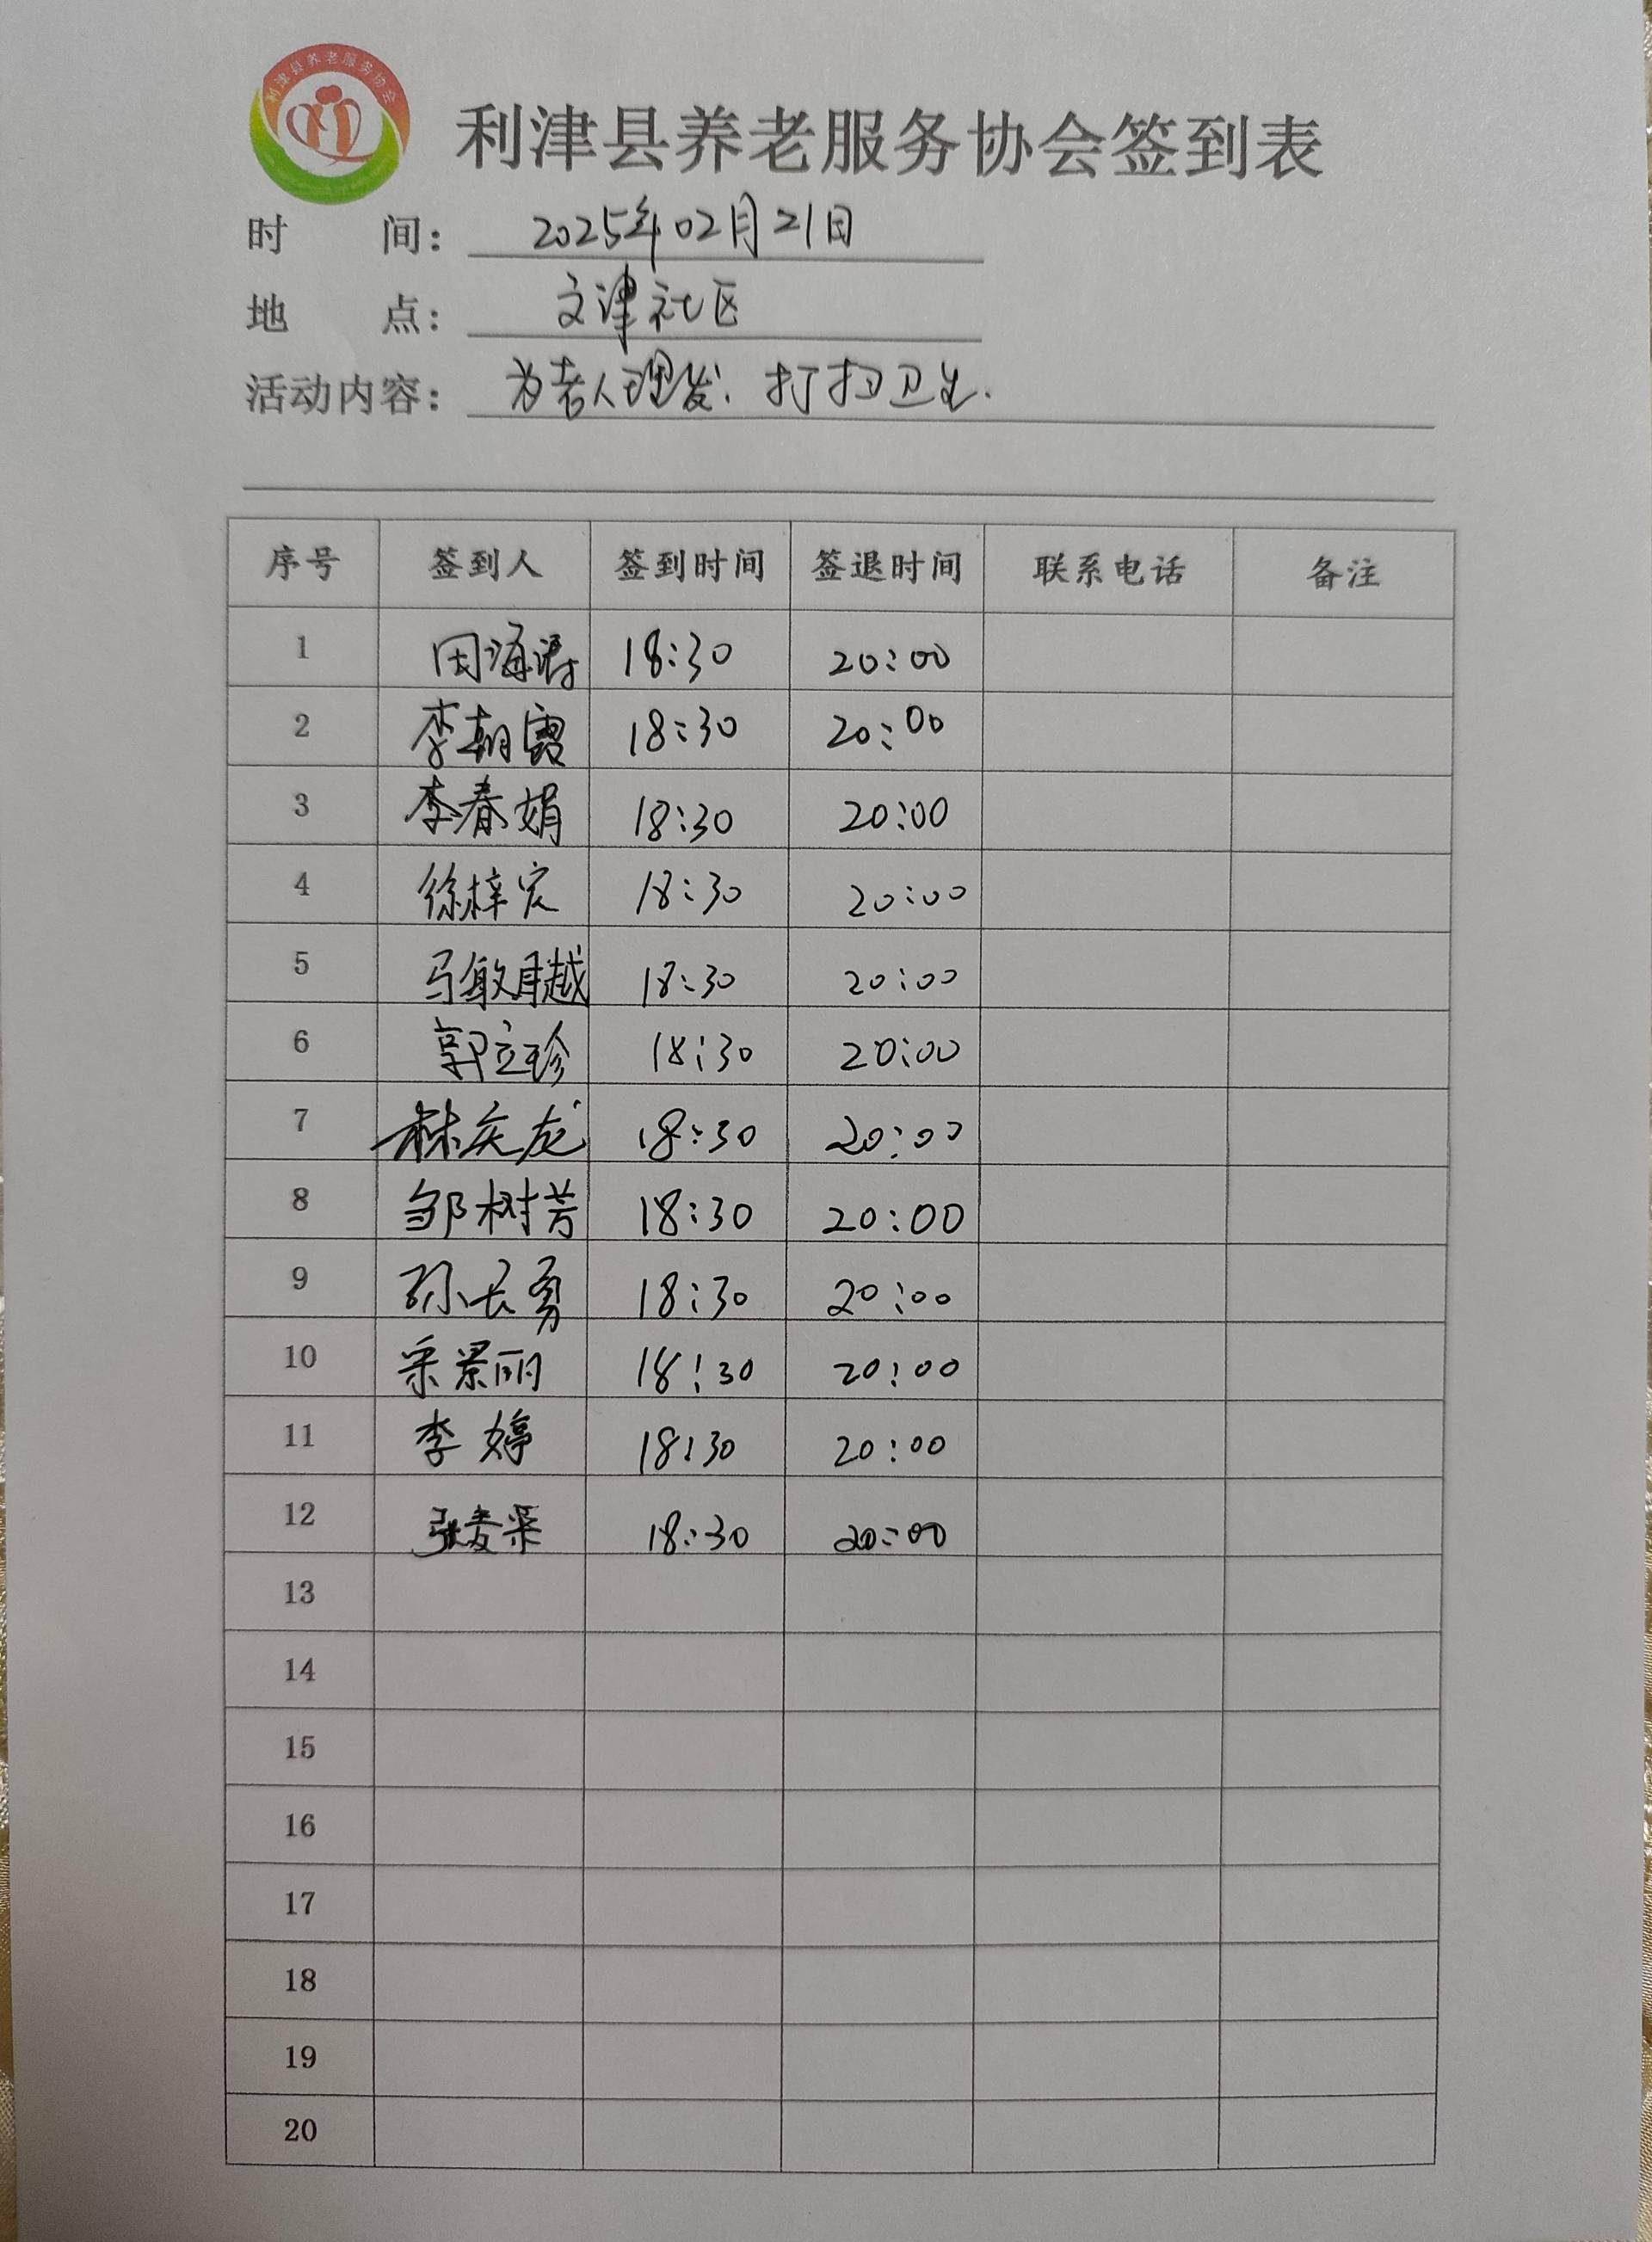 利津县养老服务协会
利津县养老服务协会签到表
时 间： 2025年02月21日
地 点： 文津社区
活动内容： 为老人理发. 打扫卫生.
序号 签到人 签到时间 签退时间 联系电话 备注
1 田海涛 18:30 20:00
2 李朝霞 18:30 20:00
3 李春娟 18:30 20:00
4 徐梓宸 18:30 20:00
5 马敏 18:30 20:00
6 郭立珍 18:30 20:00
7 林庆龙 18:30 20:00
8 邹树芳 18:30 20:00
9 孙长勇 18:30 20:00
10 景丽 18:30 20:00
11 李婷 18:30 20:00
12 张 18:30 20:00
13
14
15
16
17
18
19
20